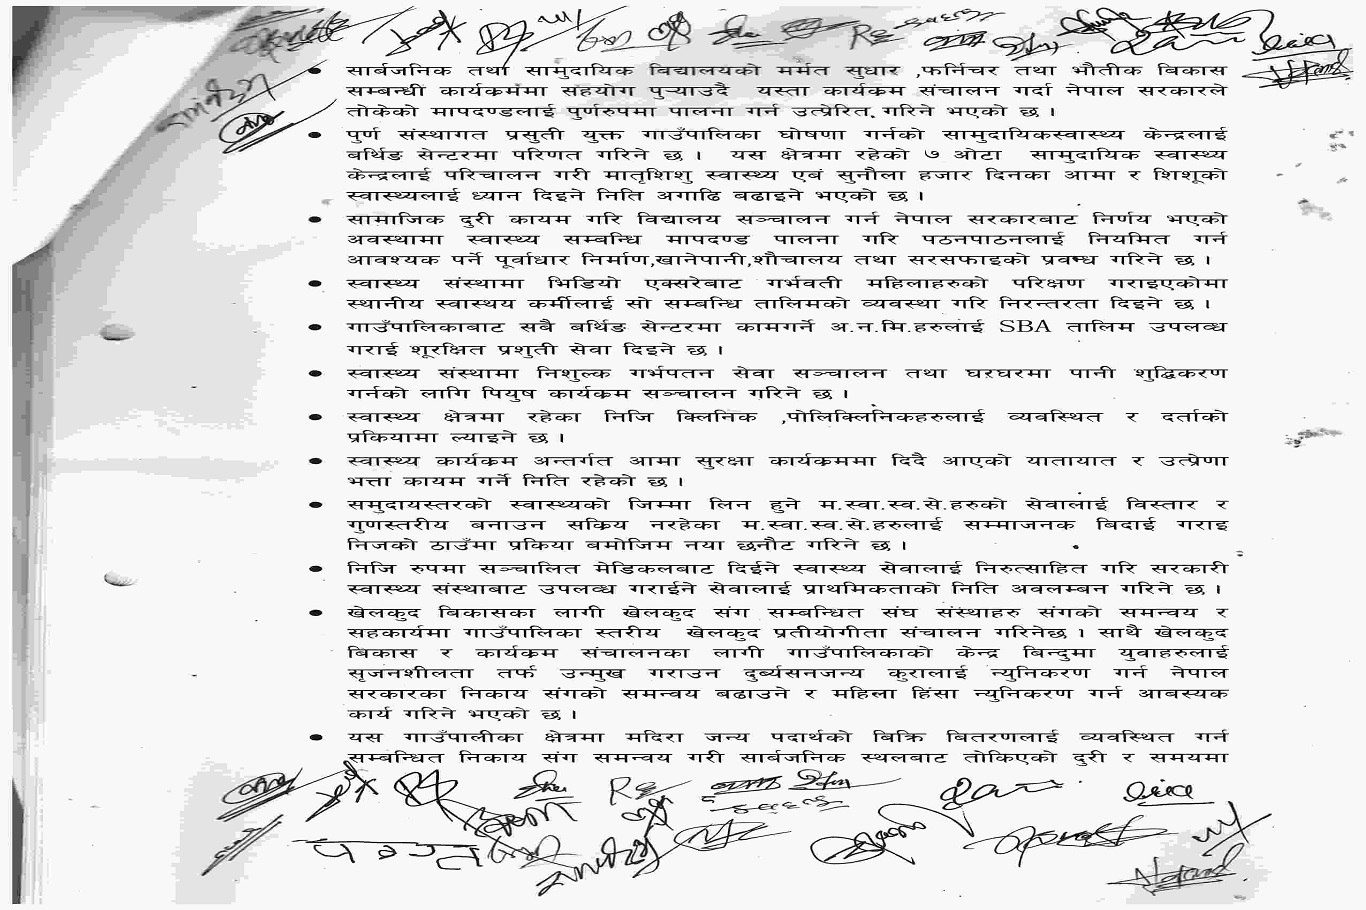 • सार्बजनिक तथा सामुदायिक विद्यालयको मर्मत सुधार ,फर्निचर तथा भौतीक बिकास
सम्बन्धी कार्यक्रममा सहयोग पुऱ्याउदै यस्ता कार्यक्रम संचालन गर्दा नेपाल सरकारले
तोकेको मापदण्डलाई पुर्णरुपमा पालना गर्न उत्प्रेरित गरिने भएको छ ।
• पुर्ण संस्थागत प्रसुती युक्त गाउँपालिका घोषणा गर्नको सामुदायिकस्वास्थ्य केन्द्रलाई
बर्थिङ सेन्टरमा परिणत गरिने छ । यस क्षेत्रमा रहेको ७ ओटा सामुदायिक स्वास्थ्य
केन्द्रलाई परिचालन गरी मातृशिशु स्वास्थ्य एबं सुनौला हजार दिनका आमा र शिशूको
स्वास्थ्यलाई ध्यान दिइने निति अगाढि बढाइने भएको छ ।
• सामाजिक दुरी कायम गरि विद्यालय सञ्चालन गर्न नेपाल सरकारबाट निर्णय भएको
अवस्थामा स्वास्थ्य सम्बन्धि मापदण्ड पालना गरि पठनपाठनलाई नियमित गर्न
आवश्यक पर्ने पूर्वाधार निर्माण,खानेपानी,शौचालय तथा सरसफाइको प्रवन्ध गरिने छ ।
• स्वास्थ्य संस्थामा भिडियो एक्सरेबाट गर्भवती महिलाहरुको परिक्षण गराइएकोमा
स्थानीय स्वास्थय कर्मीलाई सो सम्बन्धि तालिमको व्यवस्था गरि निरन्तरता दिइने छ ।
• गाउँपालिकाबाट सबै बर्थिङ सेन्टरमा कामगर्ने अ.न.मि.हरुलाई SBA तालिम उपलब्ध
गराई शूरक्षित प्रशुती सेवा दिइने छ ।
• स्वास्थ्य संस्थामा निशुल्क गर्भपतन सेवा सञ्चालन तथा घरघरमा पानी शुद्धिकरण
गर्नको लागि पियुष कार्यक्रम सञ्चालन गरिने छ ।
• स्वास्थ्य क्षेत्रमा रहेका निजि क्लिनिक ,पोलिक्लिनिकहरुलाई व्यवस्थित र दर्ताको
प्रकियामा ल्याइने छ ।
• स्वास्थ्य कार्यक्रम अन्तर्गत आमा सुरक्षा कार्यक्रममा दिदै आएको यातायात र उत्प्रेणा
भत्ता कायम गर्ने निति रहेको छ ।
• समुदायस्तरको स्वास्थ्यको जिम्मा लिन हुने म.स्वा.स्व.से.हरुको सेवालाई विस्तार र
गुणस्तरीय बनाउन सकिय नरहेका म.स्वा.स्व.से.हरुलाई सम्माजनक बिदाई गराइ
निजको ठाउँमा प्रकिया बमोजिम नया छनौट गरिने छ ।
• निजि रुपमा सञ्चालित मेडिकलबाट दिईने स्वास्थ्य सेवालाई निरुत्साहित गरि सरकारी
स्वास्थ्य संस्थाबाट उपलब्ध गराईने सेवालाई प्राथमिकताको निति अवलम्बन गरिने छ ।
• खेलकुद बिकासका लागी खेलकुद संग सम्बन्धित संघ संस्थाहरु संगको समन्वय र
सहकार्यमा गाउँपालिका स्तरीय खेलकुद प्रतीयोगीता संचालन गरिनेछ । साथै खेलकुद
बिकास र कार्यक्रम संचालनका लागी गाउँपालिकाको केन्द्र बिन्दुमा युवाहरुलाई
सृजनशीलता तर्फ उन्मुख गराउन दुर्ब्यसनजन्य कुरालाई न्युनिकरण गर्न नेपाल
सरकारका निकाय संगको समन्वय बढाउने र महिला हिंसा न्युनिकरण गर्न आबस्यक
कार्य गरिने भएको छ ।
• यस गाउँपालीका क्षेत्रमा मदिरा जन्य पदार्थको बिक्रि बितरणलाई व्यवस्थित गर्न
सम्बन्धित निकाय संग समन्वय गरी सार्बजनिक स्थलबाट तोकिएको दुरी र समयमा